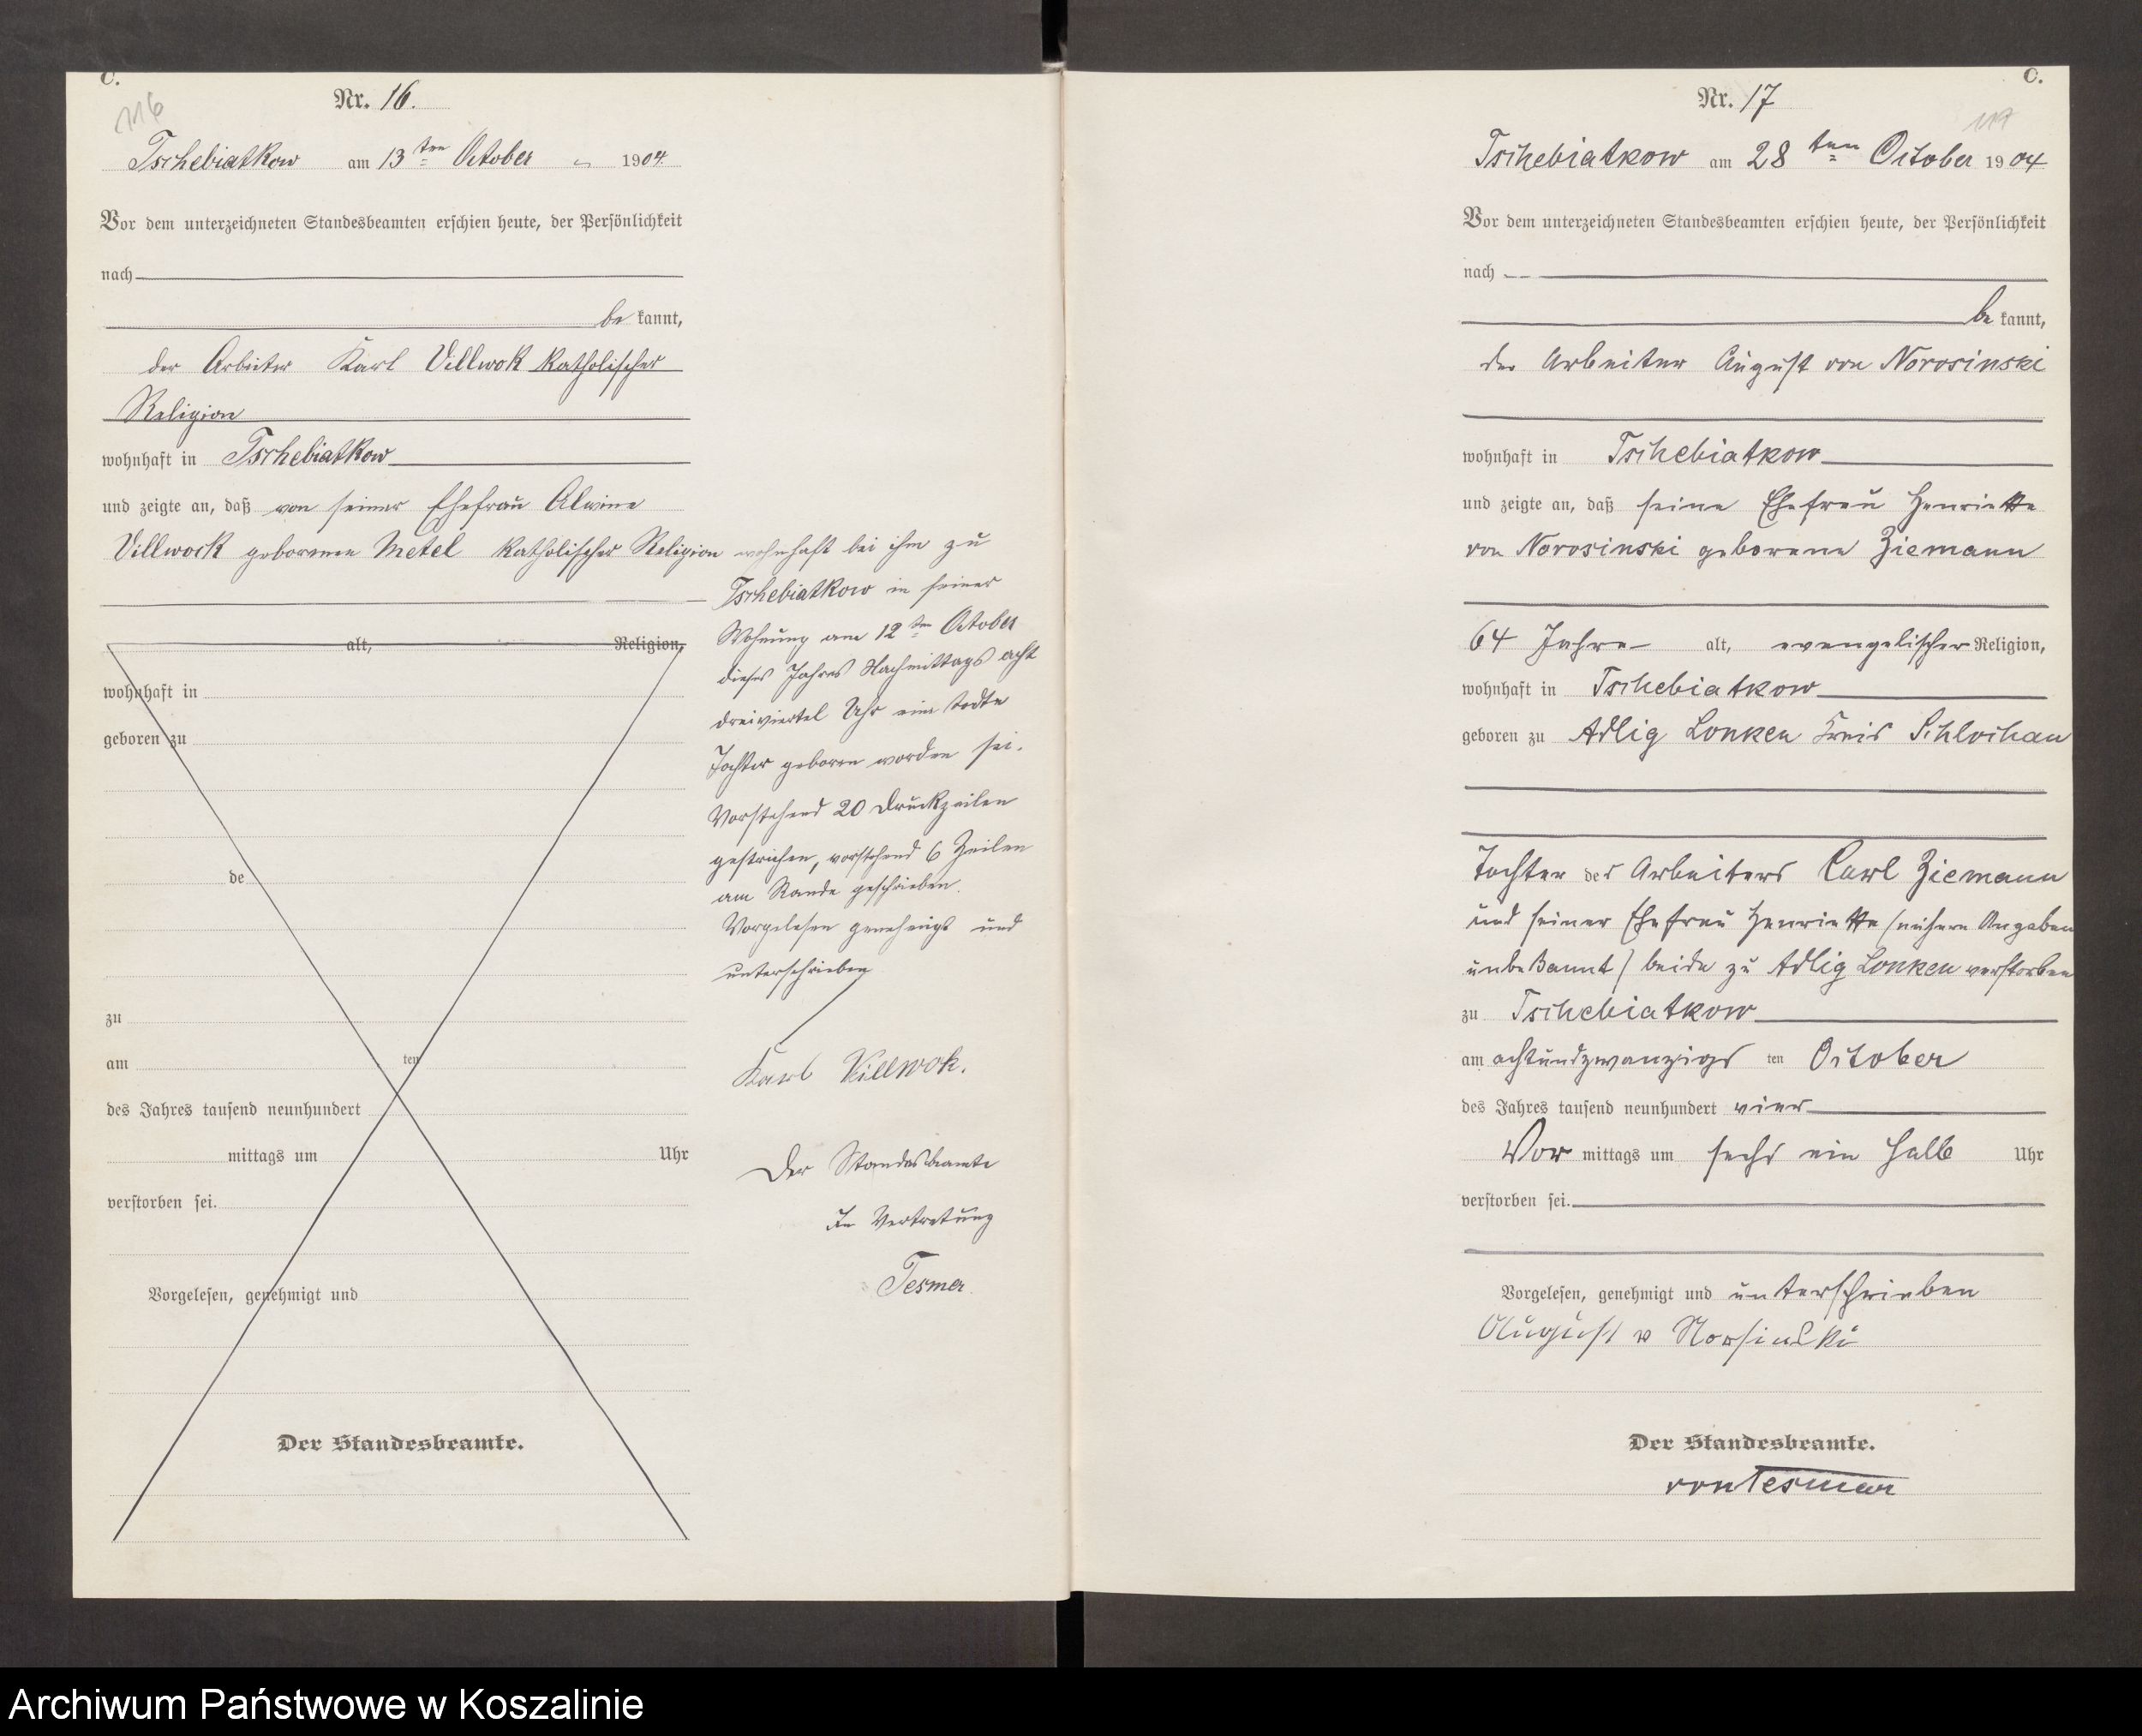 C.
116
Nr. 16.
Tschebiatkow am 13ten October 1904.
Vor dem unterzeichneten Standesbeamten erschien heute, der Persönlichkeit
nach
be kannt,
der Arbeiter Karl Villwok katholischer
Religion
wohnhaft in Tschebiatkow
und zeigte an, daß von seiner Ehefrau Alwine
Villwock geborenen Metel katholischer Religion wohnhaft bei ihm zu
Tschebiatkow in seiner
Wohnung am 12ten October
dieses Jahres Nachmittags acht
dreiviertel Uhr eine todte
Tochter geboren worden sei.
Vorstehend 20 Druckzeilen
gestrichen, vorstehend 6 Zeilen
am Rande geschrieben.
Vorgelesen genehmigt und
unterschrieben
Karl Villwok.
Der Standesbeamte
In Vertretung
Tesmer
alt, Religion,
wohnhaft in
geboren zu
de
zu
am ten
des Jahres tausend neunhundert
mittags um Uhr
verstorben sei.
Vorgelesen, genehmigt und
Der Standesbeamte.
C.
117
Nr. 17
Tschebiatkow am 28ten October 1904
Vor dem unterzeichneten Standesbeamten erschien heute, der Persönlichkeit
nach
be kannt,
der Arbeiter August von Norosinski
wohnhaft in Tschebiatkow
und zeigte an, daß seine Ehefrau Henriette
von Norosinski geborene Ziemann
64 Jahre alt, evangelischer Religion,
wohnhaft in Tschebiatkow
geboren zu Adlig Lonken Kreis Schlochau
Tochter des Arbeiters Carl Ziemann
und seiner Ehefrau Henriette (nähere Angaben
unbekannt) beide zu Adlig Lonken verstorben
zu Tschebiatkow
am achtundzwanzigs ten October
des Jahres tausend neunhundert vier
Vor mittags um sechs ein halb Uhr
verstorben sei.
Vorgelesen, genehmigt und unterschrieben
August v Norsinski
Der Standesbeamte.
von Tesmar
Archiwum Państwowe w Koszalinie